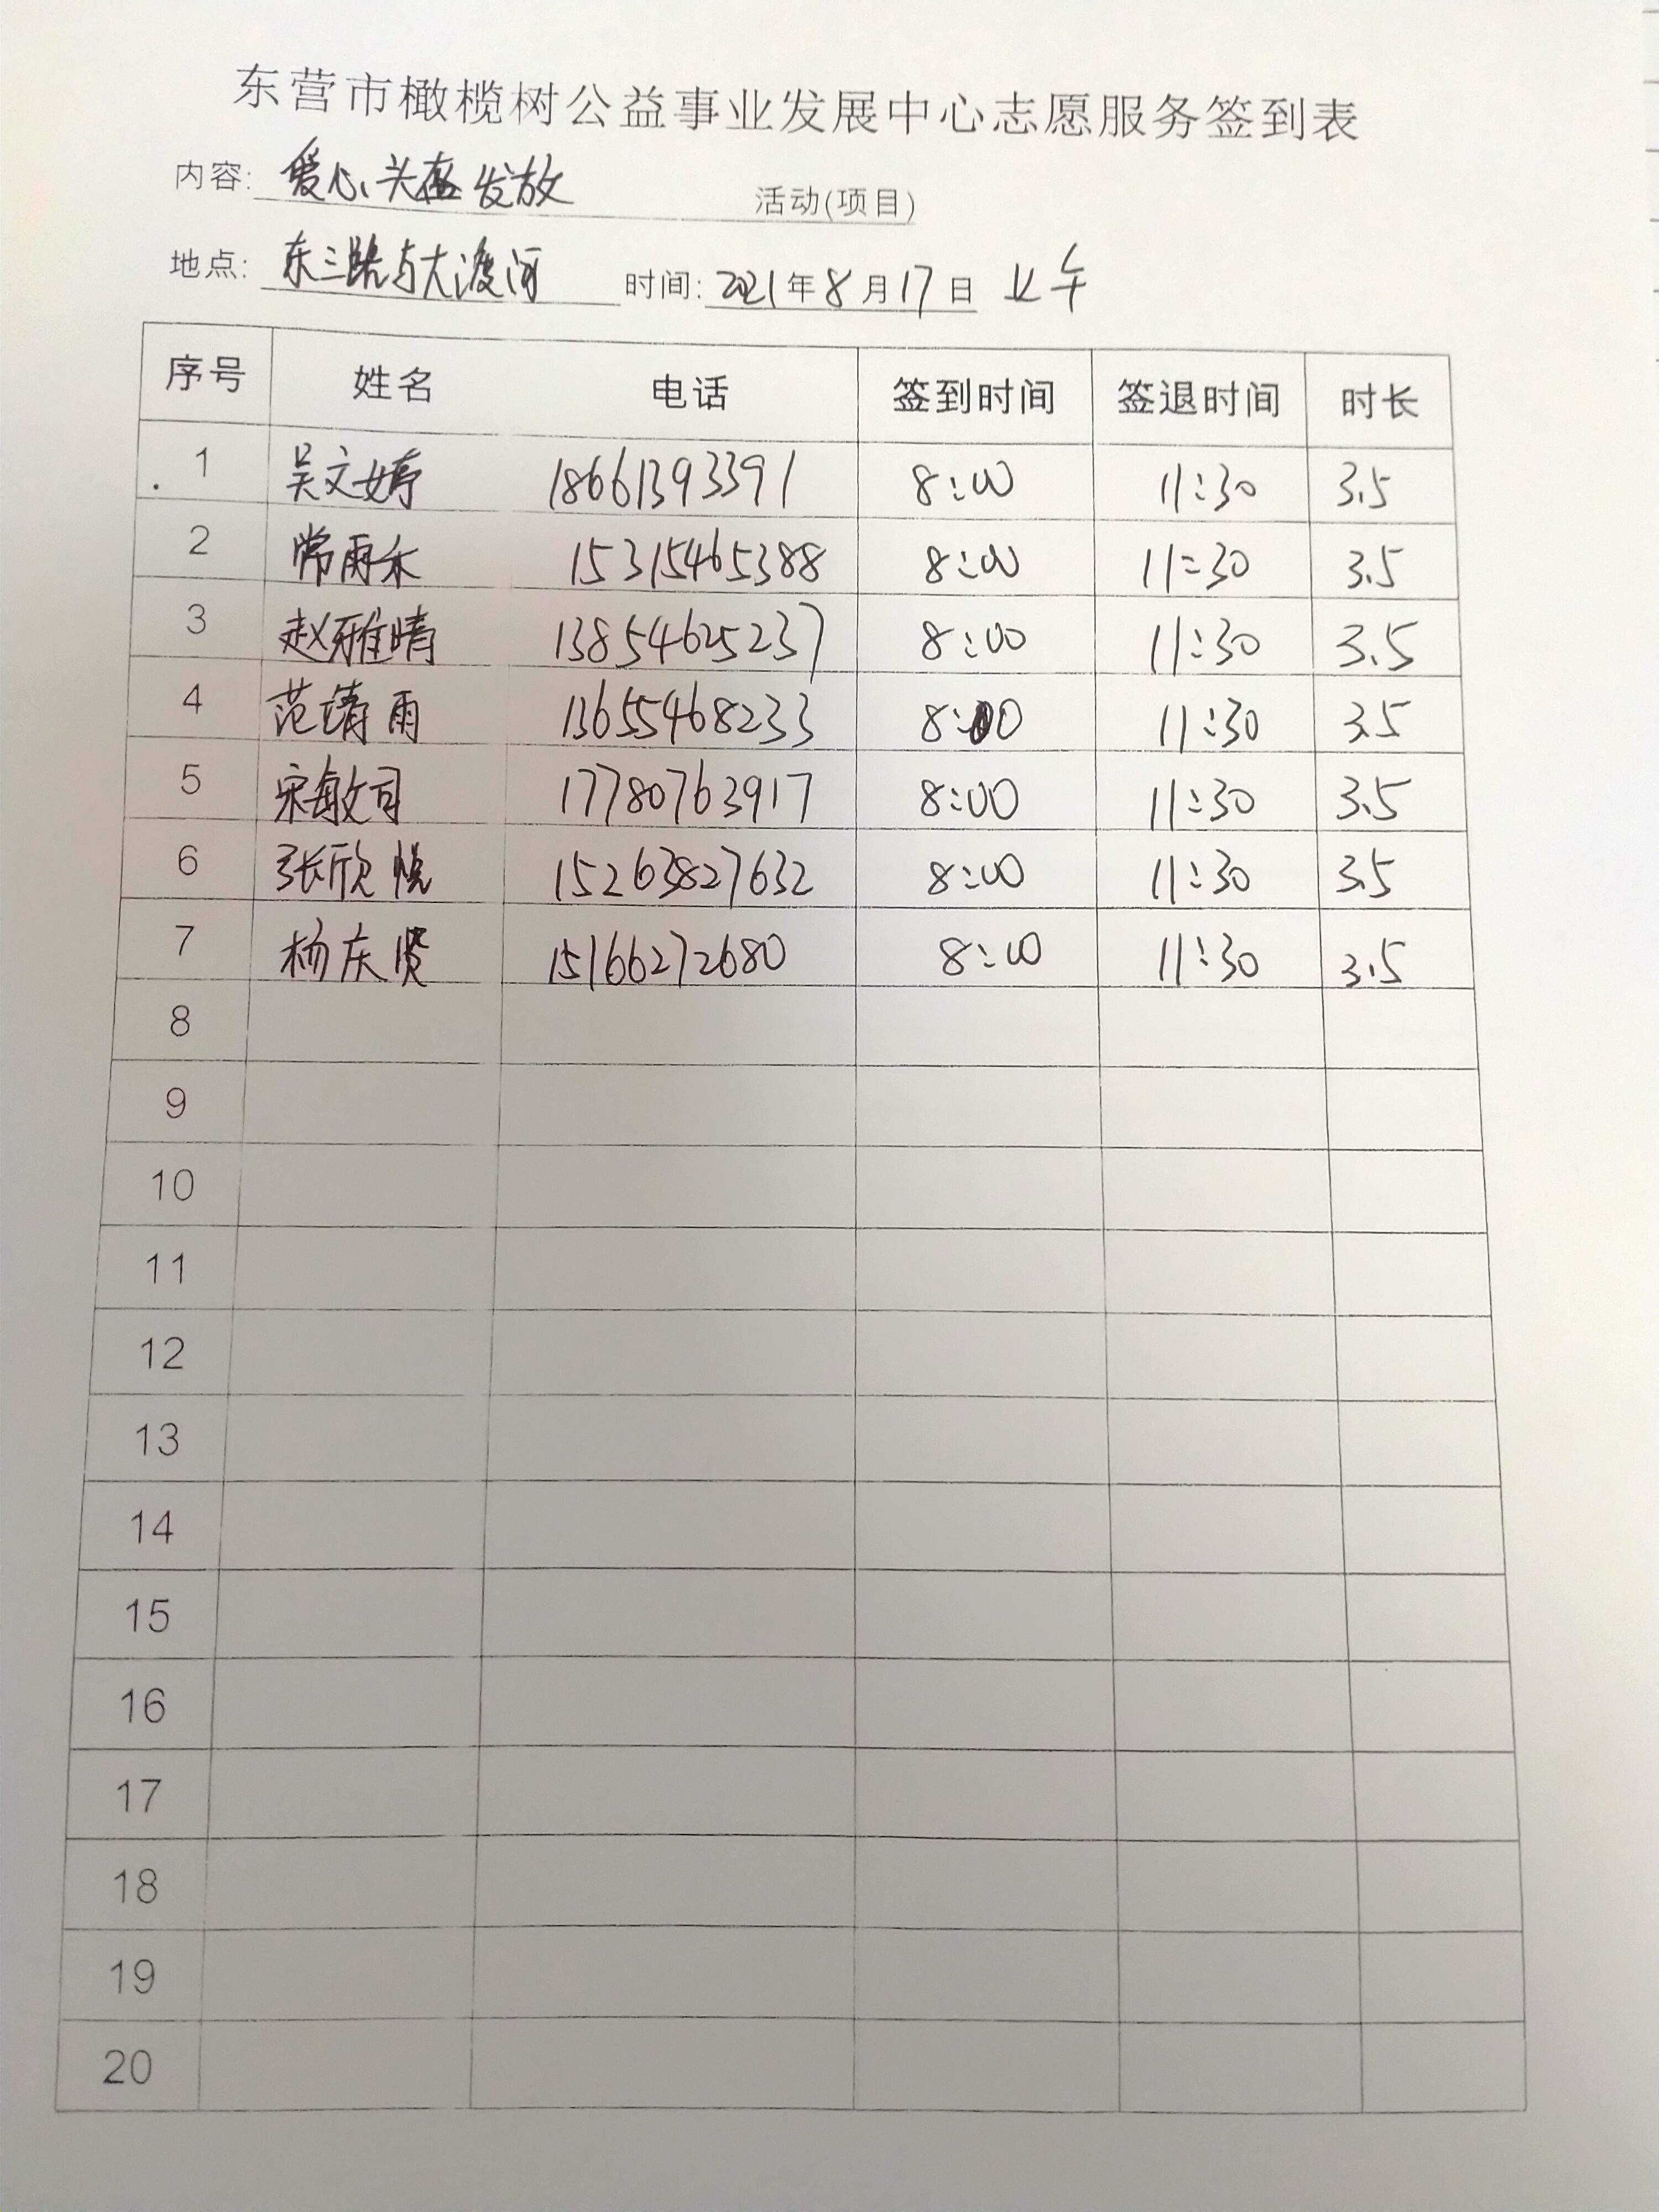 东营市橄榄树公益事业发展中心志愿服务签到表
内容: 爱心头盔发放 活动(项目)
地点: 东三路与大渡河 时间: 2021年8月17日 上午
序号 姓名 电话 签到时间 签退时间 时长
1 吴文婷 18661393391 8:00 11:30 3.5
2 常雨禾 15315465388 8:00 11:30 3.5
3 赵雅晴 13854625237 8:00 11:30 3.5
4 范靖雨 13655468233 8:00 11:30 3.5
5 宋敏司 17780763917 8:00 11:30 3.5
6 张欣悦 15263827632 8:00 11:30 3.5
7 杨庆贤 15166272680 8:00 11:30 3.5
8
9
10
11
12
13
14
15
16
17
18
19
20